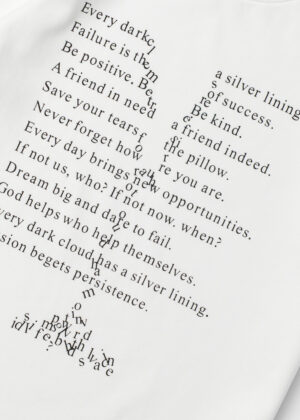 Every dark a silver lining
Failure is the of success.
Be positive. Be Be kind.
A friend in need a friend indeed.
Save your tears for the pillow.
Never forget how you are.
Every day brings new opportunities.
If not us, who? If not now. when?
Dream big and dare to fail.
God helps who help themselves.
very dark cloud has a silver lining.
sion begets persistence.